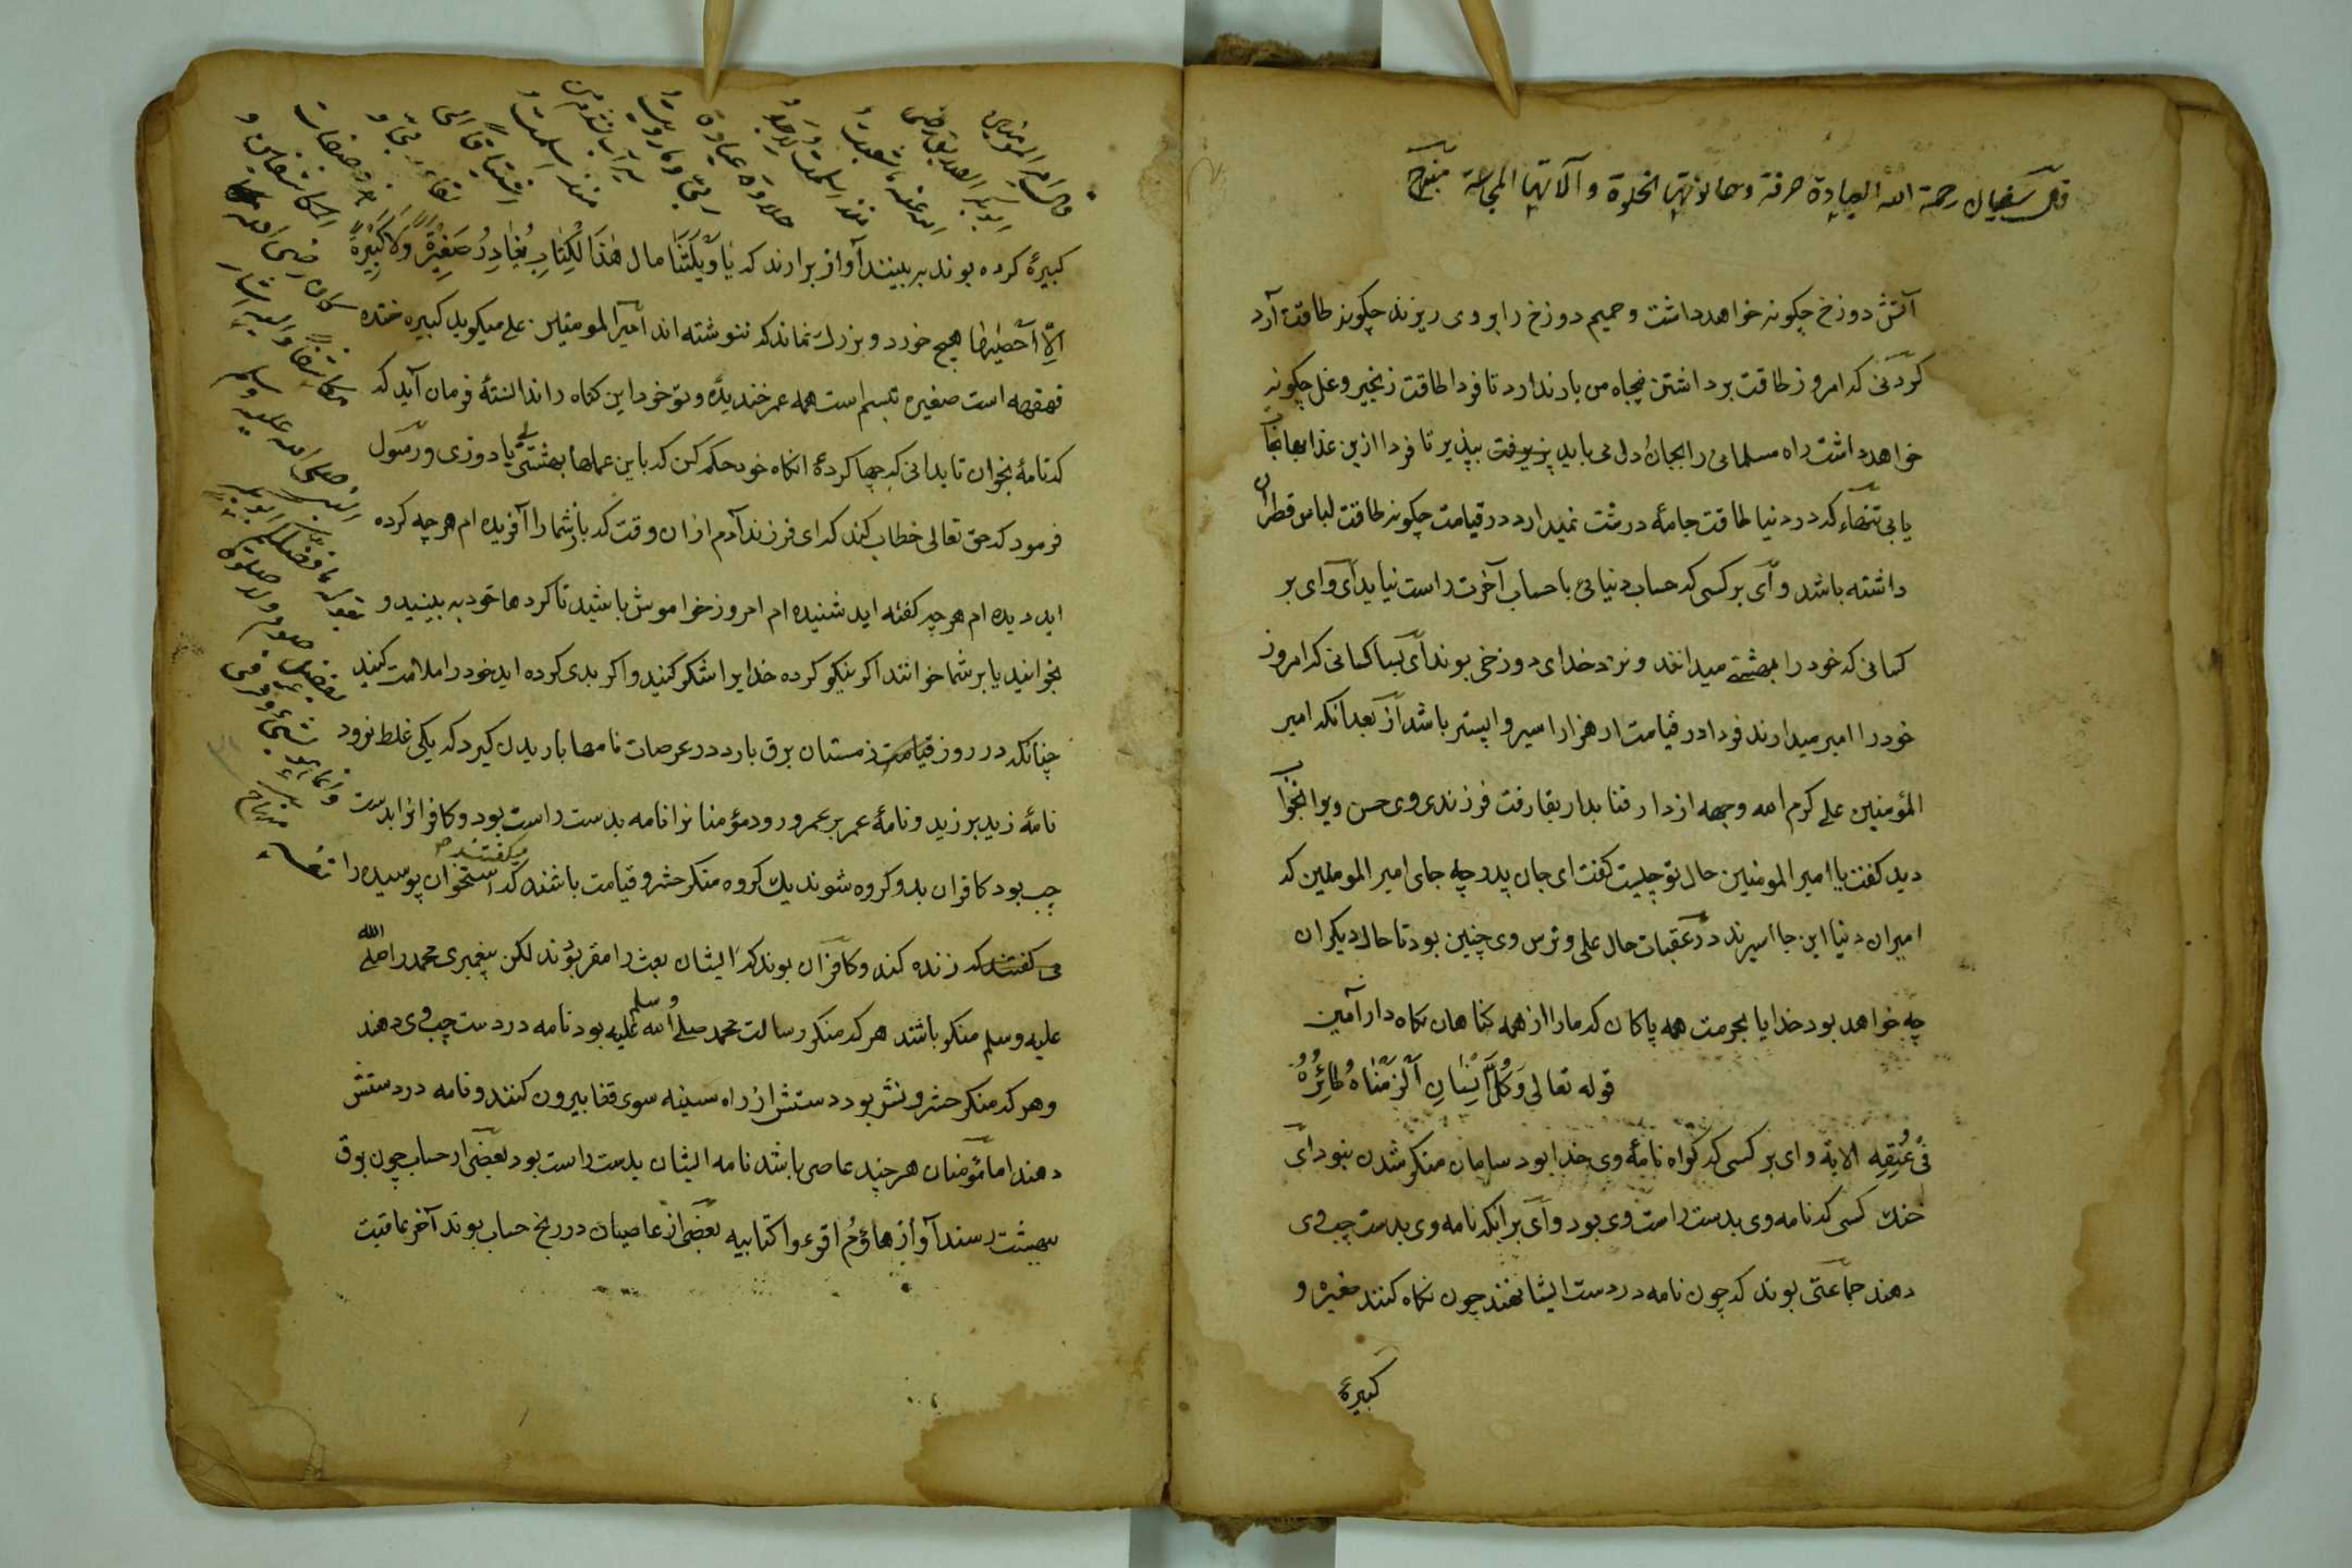 قال سفیان رحمة الله العبادة حرفة وحانوتها الخلوة وآلاتها المجاعة منهاج
آتش دوزخ چکونه خواهد داشت و حمیم دوزخ را بر وی ریزند چکونه طاقت آرد
کردنی که امروز طاقت برداشتن پنجاه من بار ندارد تا فردا طاقت زنجیر و غل چکونه
خواهد داشت راه مسلمانی را بجان و دل می باید پزیرفت بپذیر تا فردا ازین عذابها نجات
یابی تنها که در دنیا طاقت جامهٔ درشت نمیدارد در قیامت چکونه طاقت لباس قطران
داشته باشد وای بر کسی که حساب دنیا وی با حساب آخرت راست نیاید ای وای بر
کسانی که خود را بهشتی میدانند و نزد خدای دوزخی بوند ای بسا کسانی که امروز
خود را امیر میدارند فردا در قیامت از هزار اسیر واپستر باشد از بعد آنکه امیر
المؤمنین علی کرم الله وجهه از دار فنا بدار بقا رفت فرزند وی حسن ویرا بخواب
دید کفت یا امیر المومنین حال تو چیست کفت ای جان پدر چه جای امیر المومنین که
امیران دنیا این جا اسیرند در عقبات حال علی و ترس وی چنین بود تا حال دیکران
چه خواهد بود خدایا بحرمت همه پاکان که ما را از همه کناهان نکاه دار آمین
قوله تعالی وَكُلَّ اِنْسَانٍ اَلْزَمْنَاهُ طَائِرَهُ
فِی عُنُقِهِ الایة وای بر کسی که کواه نامهٔ وی خدا بود سامان منکر شدن نبود ای
خنك کسی که نامه وی بدست راست وی بود وای بر آنکه نامه وی بدست چپ وی
دهند جماعتی بوند که چون نامه در دست ایشان نهند چون نکاه کنند صغیره و
کبیرهٔ
کبیرهٔ کرده بوند به بینند آواز برآرند که یَا وَیْلَتَنَا مال هٰذَا الْكِتَابِ یُغَادِرُ صَغِیْرَةً وَّلَا كَبِیْرَةً
اِلَّا اَحْصٰیهَا هیچ خورد و بزرك نماند که ننوشته اند امیر المومنین علی میکوید کبیره خنده
قهقهه است صغیره تبسم است همه عمر خندیدهٔ و تو خود این کناه را ندانستهٔ فرمان آید که
که نامهٔ بخوان تا بدانی که چها کردهٔ آنکاه خود حکم کن که باین عملها بهشتیٔ یا دوزخی و رسول
فرمود که حق تعالی خطاب کند که ای فرزند آدم از ان وقت که باز شما را آفریده ام هر چه کرده
اید دیده ام هر چه کفته اید شنیده ام امروز خاموش باشید تا کردها خود به بینید و
بخوانید یا بر شما خوانند اکر نیکو کرده خدایرا شکر کنید و اکر بدی کرده اید خود را ملامت کنید
چنانکه در روز قیامت زمستان برف بارد در عرصات نامها باریدن کیرد که یکی غلط نرود
نامهٔ زید بر زید و نامهٔ عمر بر عمر و رود مؤمنانرا نامه بدست راست بود و کافرانرا بدست
چپ بود کافران بدو کروه شوند یك کروه منکر حشر و قیامت باشند که میکفتند استخوان پوسیده را
می کفتند که زنده کند و کافران بوند که ایشان بعث را مقر بوند لکن پیغمبری محمد را صلی الله
علیه وسلم منکر باشند هر که منکر رسالت محمد صلی الله علیه وسلم بود نامه در دست چپ وی دهند
و هر که منکر حشر و نشر بود دستش از راه سینه سوی قفا بیرون کنند و نامه در دستش
دهند اما مؤمنان هر چند عاصی باشد نامه ایشان بدست راست بود بعضی از حساب چون برق
ببهشت رسند آواز هاؤم اقرءوا کتابیه بعضی از عاصیان در رنج حساب بوند آخر عاقبت
قال امیر المومنین
ابوبکر الصدیق رضی
الله عنه ما شبعت
منذ اسلمت لاجد
حلاوة عبادة
ربی وما رویت
منذ اسلمت
اشتیاقا الی
لقاء ربی و
صلی الله علیه وسلم